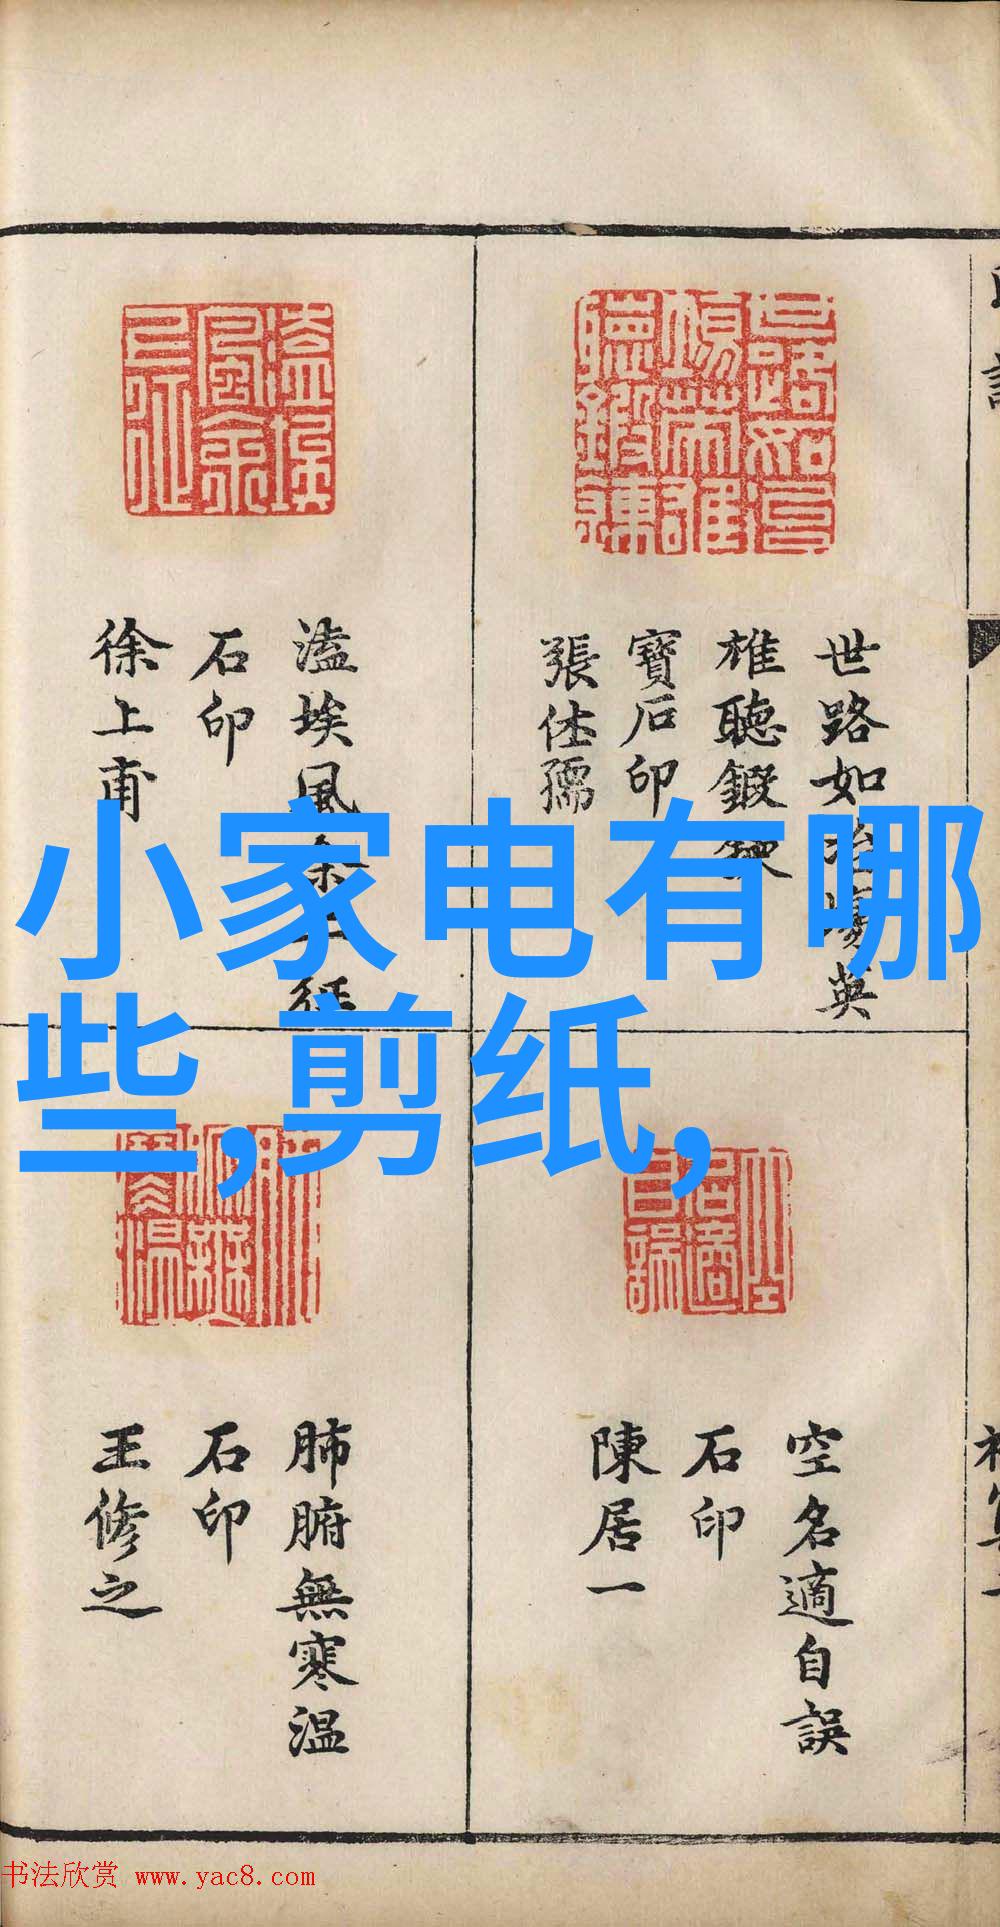 小家电有哪
些,剪纸,
世路如冶場英
雄聽鍛鍊
寶石印
張仕孺
溘埃風余上征
石印
徐上甫
空名適自誤
石印
陳居一
肺腑無寒温
石印
王修之
书法欣赏 www.yac8.com